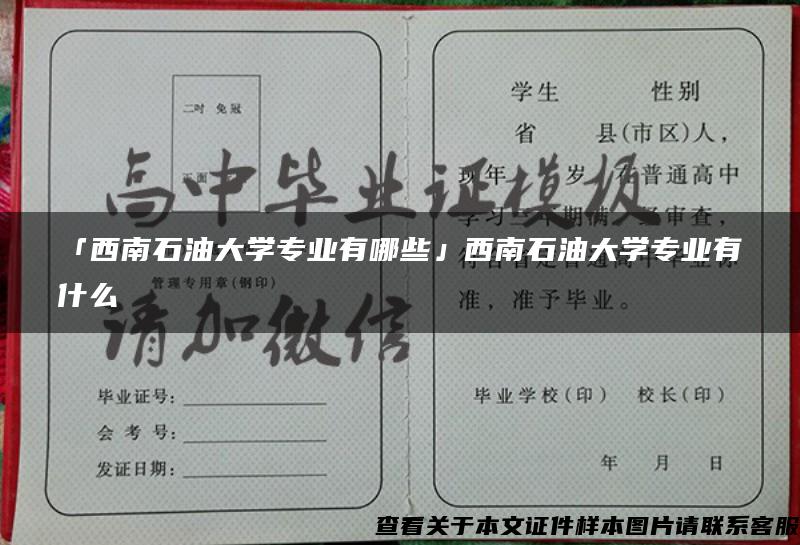 二吋 免冠
正面
高中毕业证模板
「西南石油大学专业有哪些」西南石油大学专业有
什么
管理专用章(钢印)
请加微信
毕业证号:
会 考 号:
发证日期:
学生 性别
省 县(市区)人,
现年 岁 在普通高中
准, 准予毕业。
毕业学校(印) 校长(印)
年 月 日
查看关于本文证件样本图片请联系客服